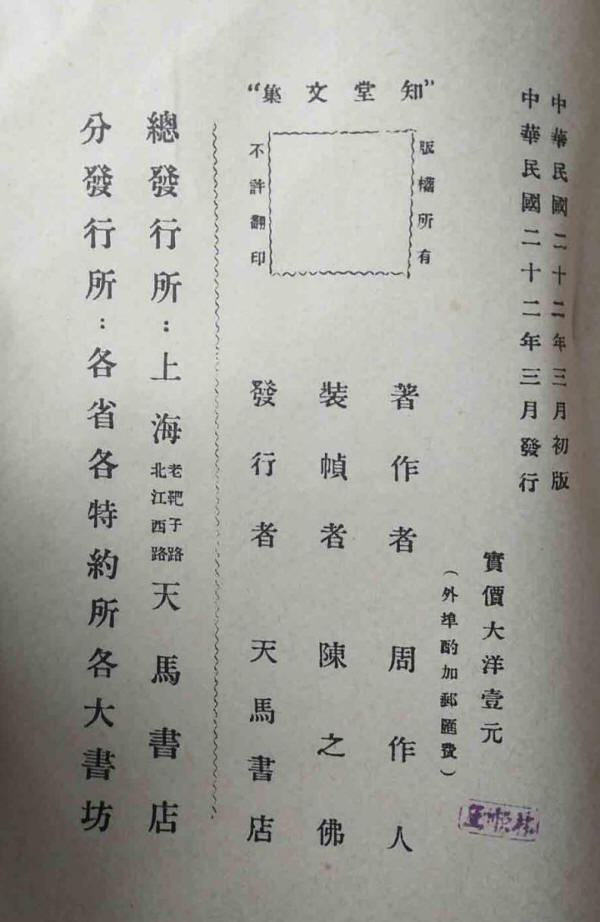 中華民國二十二年三月初版
中華民國二十二年三月發行
實價大洋壹元
（外埠酌加郵匯費）
“知堂文集”
版權所有
不許翻印
著作者 周作人
裝幀者 陳之佛
發行者 天馬書店
總發行所：上海老靶子路北江西路天馬書店
分發行所：各省各特約所各大書坊